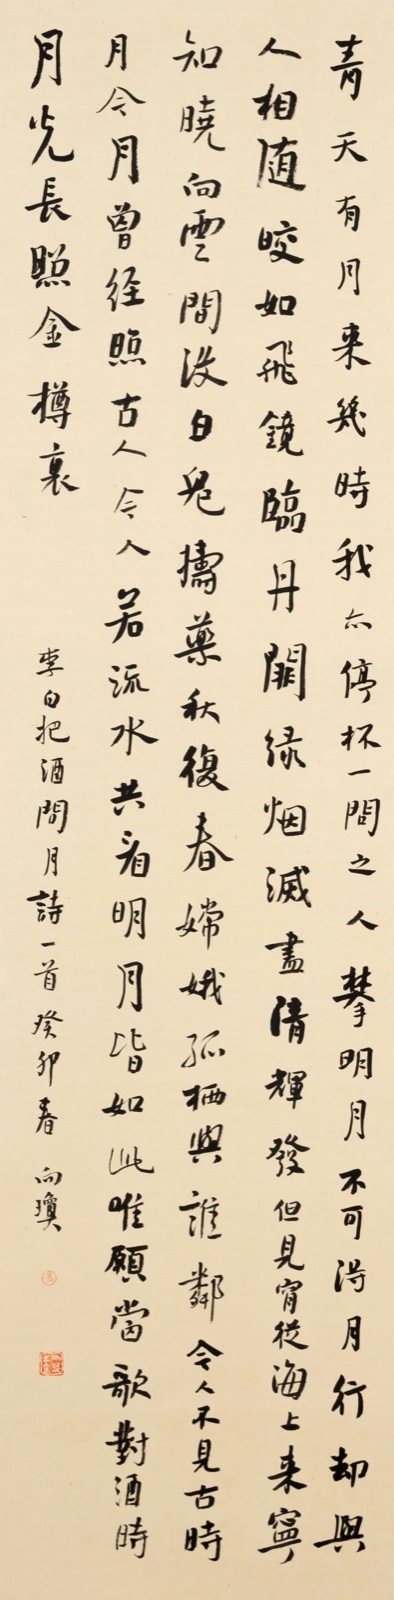 青天有月来幾時我亦停杯一問之人攀明月不可得月行却與
人相随皎如飛鏡臨丹闕緑烟滅盡清輝發但見宵從海上来寧
知曉向雲間没白兔擣藥秋復春嫦娥孤栖與誰鄰今人不見古時
月今月曾經照古人今人若流水共看明月皆如此唯願當歌對酒時
月光長照金樽裏
李白把酒問月詩一首癸卯春 向瓊